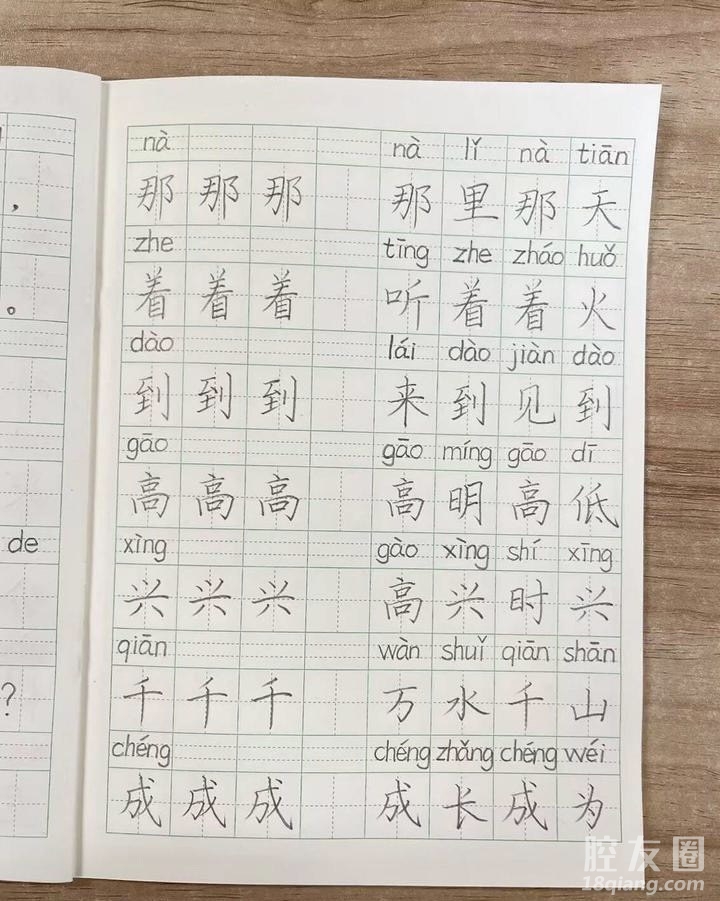 nà nà lǐ nà tiān
那 那 那 那 里 那 天
zhe tīng zhe zháo huǒ
着 着 着 听 着 着 火
dào lái dào jiàn dào
到 到 到 来 到 见 到
gāo gāo míng gāo dī
高 高 高 高 明 高 低
xìng gào xìng shí xīng
兴 兴 兴 高 兴 时 兴
qiān wàn shuǐ qiān shān
千 千 千 万 水 千 山
chéng chéng zhǎng chéng wéi
成 成 成 成 长 成 为
,
。
de
?
腔友圈
18qiang.com